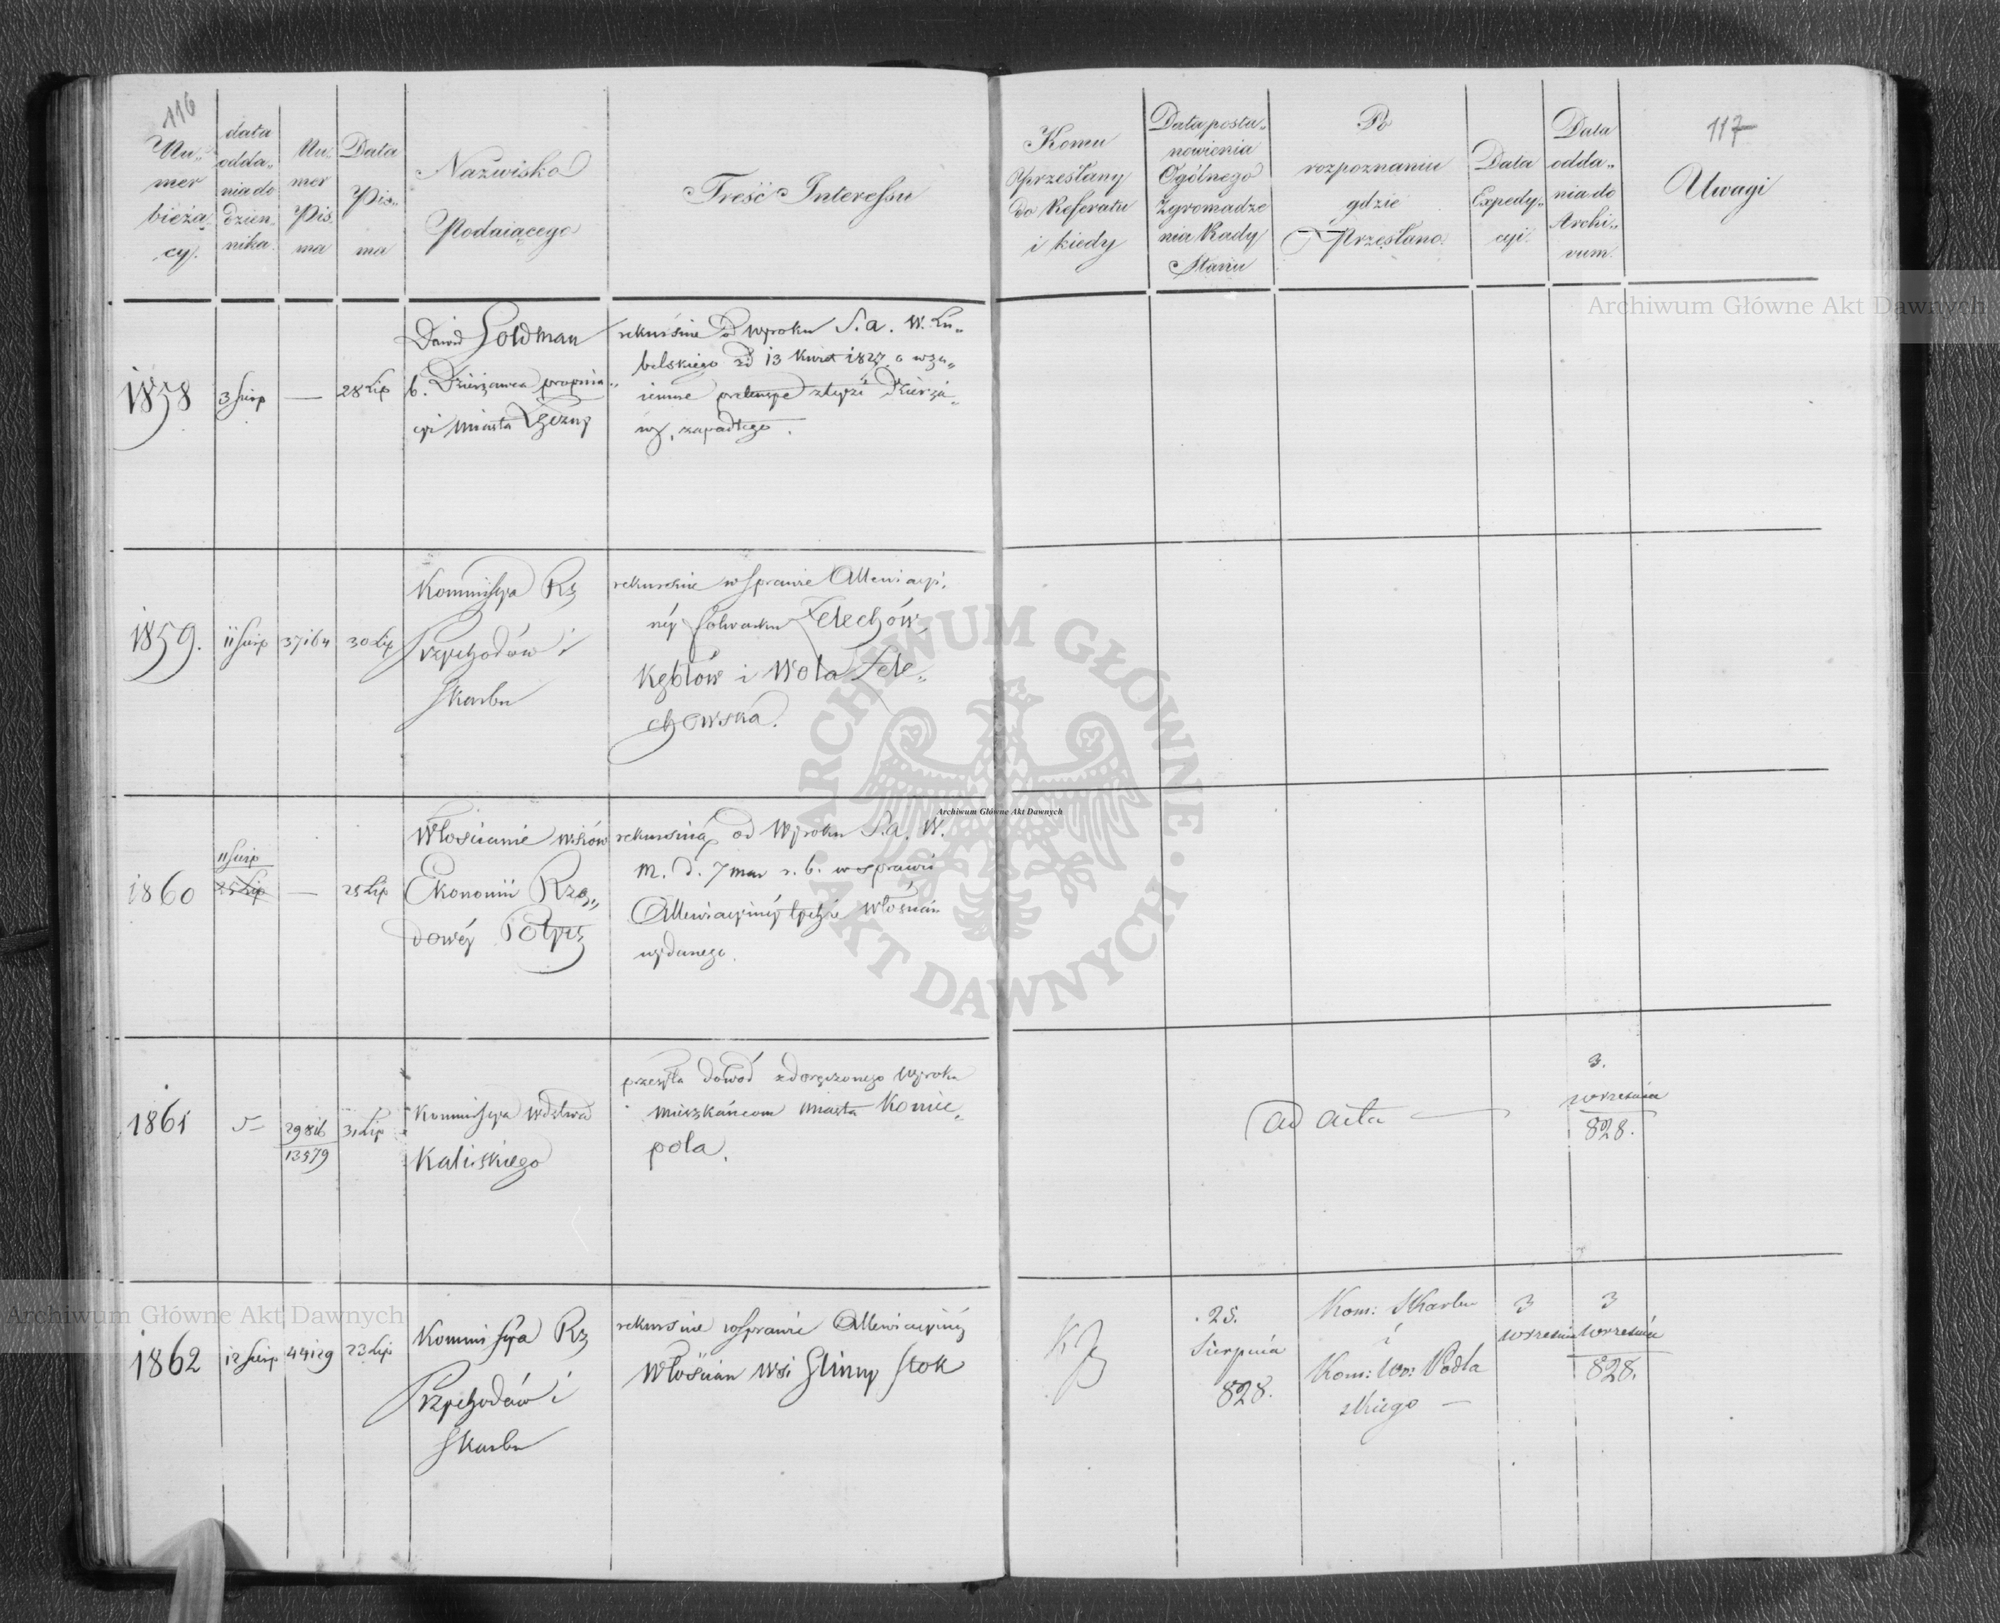 116
Nu-
mer
bieżą
cy.
data
odda-
nia do
dzien-
nika.
Nu-
mer
Pis
ma
Data
Pis-
ma
Nazwisko
Podaiącego
Treść Interessu
1858
3 Sierp
—
28 Lip
Dawid Goldman
b. Dzierżawca propina-
cyi miasta Łęczny
rekursuie od wyroku S. a. W. Lu-
belskiego dd 13 kwiet 1827 o wza-
iemne pretensye z tyże Dzierża-
wy, zapadłego.
1859.
11 Sierp
37164
30 Lip
Kommissya Rz
Przychodów i
Skarbu
rekursuie w sprawie Allewiacyi-
néy folwarku Żelechów,
Kębłów i Wola Żele-
chowska.
1860
11 Sierp
25 Lip
—
25 Lip
Włościanie wsiów
Ekonomii Rzą-
dowéy Potycz
rekursuią od Wyroku S. a. W.
M. d. 7 mar r. b. w sprawie
Allewiacyinéy tychże włościan
wydanego.
1861
5
29816
13579
31 Lip
Kommissya wdztwa
Kaliskiego
przesyła dowód zdoręczonego wyroku
mieszkańcom miasta Koniec-
pola.
1862
12 Sierp
44129
23 Lip
Kommissya Rz
Przychodów i
Skarbu
rekursuie w sprawie Allewiacyinéy
Włościan wsi Gliny Stok
117
Komu
Przesłany
do Referatu
i kiedy
Data posta-
nowienia
Ogólnego
Zgromadze
nia Rady
Stanu
Po
rozpoznaniu
gdzie
Przesłano.
Data
Expedy-
cyi.
Data
odda-
nia do
Archi-
vum.
Uwagi
ad acta —
3.
września
828.
25.
Sierpnia
828.
Kom: Skarbu
i
Kom: Wo: Podla
skiego —
3
września
3
września
828.
Archiwum Główne Akt Dawnych
Archiwum Główne Akt Dawnych
Archiwum Główne Akt Dawnych
ARCHIWUM GŁÓWNE AKT DAWNYCH